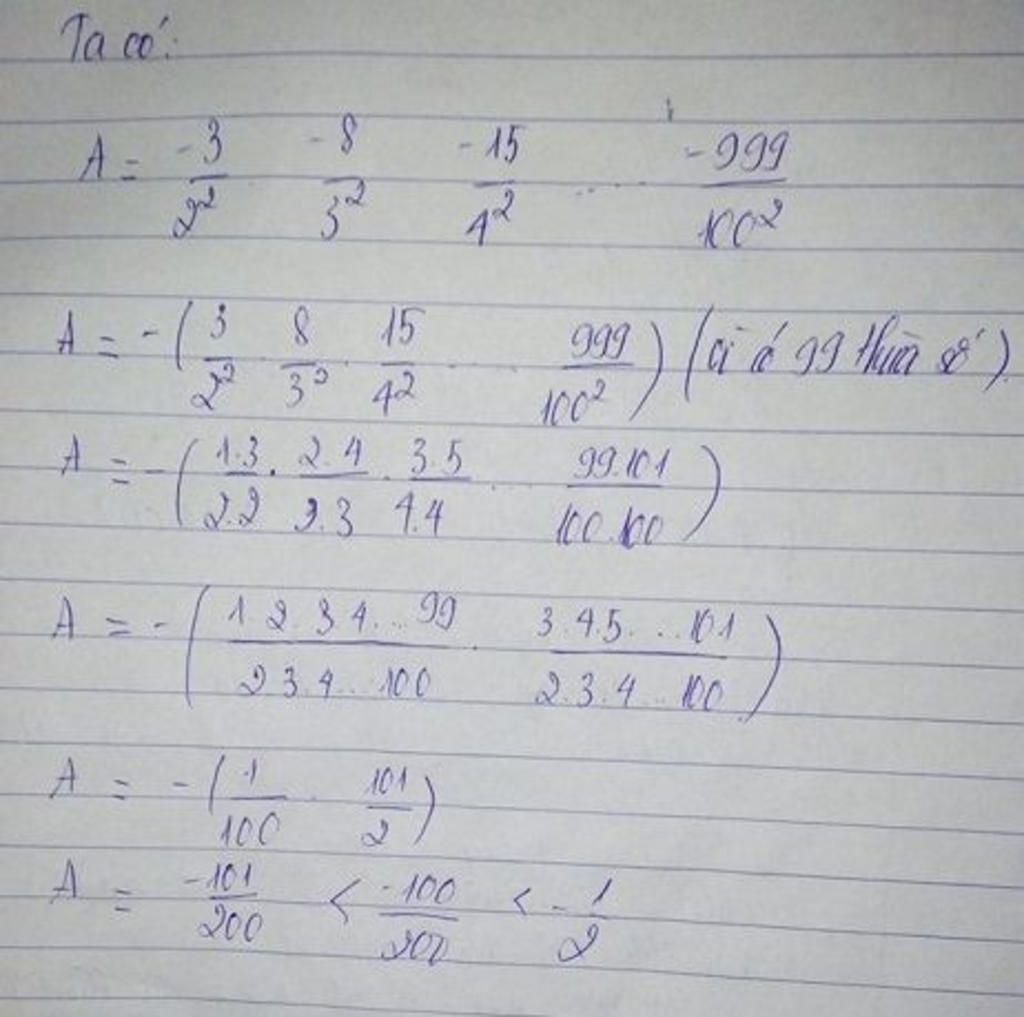 Ta có:
A = -3/2² -8/3² -15/4² ..... -999/100²
A = -(3/2² . 8/3² . 15/4² ... 999/100²) (có 99 thừa số)
A = -(1.3/2.2 . 2.4/3.3 . 3.5/4.4 ... 99.101/100.100)
A = -(1 2.3 4...99/2 3 4...100 . 3.4.5...101/2.3.4...100)
A = -(1/100 . 101/2)
A = -101/200 < -100/200 < -1/2